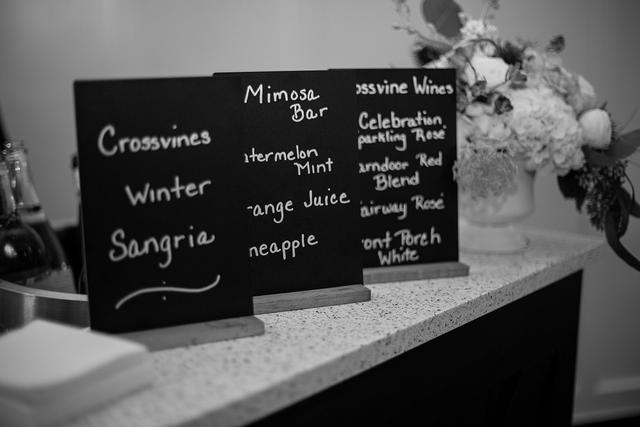 Crossvines
Winter
Sangria
Mimosa
Bar
atermelon
Mint
ange Juice
neapple
ossvine Wines
Celebration
parkling Rosé
arndoor Red
Blend
airway Rosé
ront Porch
White